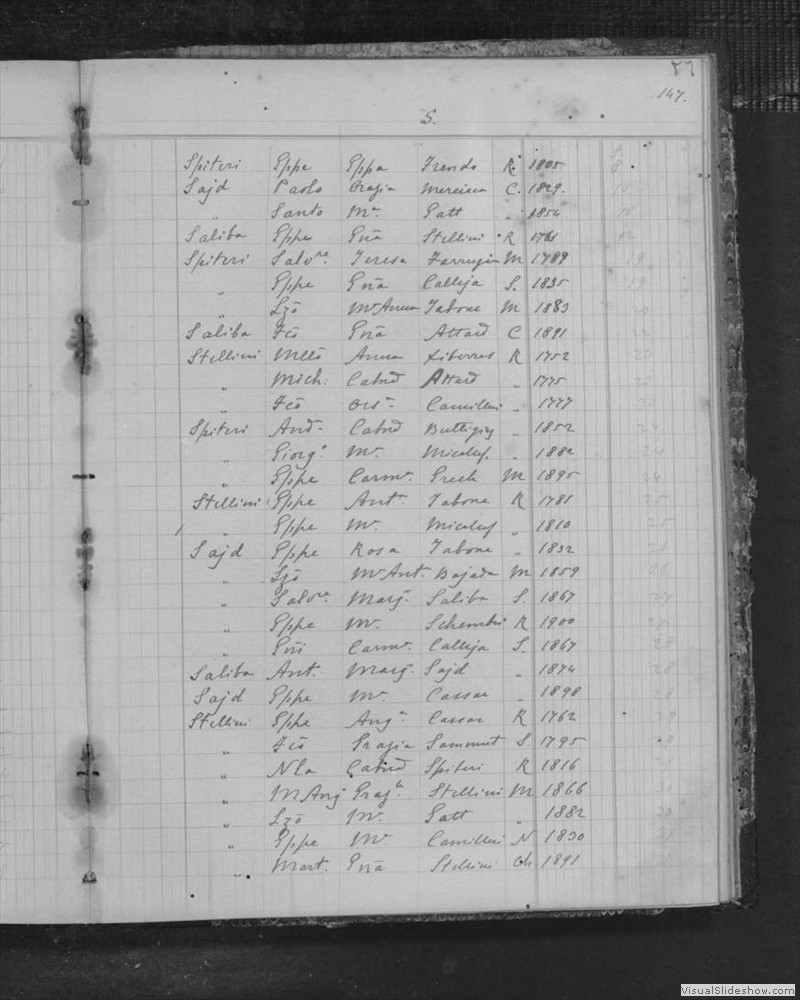 147.
S.
Spiteri Gppe Gppa Frendo R. 1805 8
Sajd Paolo Grazia Mercieca C. 1829. 10
„ Santo Mª Gatt „ 1854
Saliba Gppe Gnā Stellini R 1761
Spiteri Salvre Teresa Farrugia M 1789 19
„ Gppe Gnā Calleja S. 1835 19
„ Lzō Mª Anna Tabone M 1883 20
Saliba Fcō Gnā Attard C 1891 22
Stellini Mllō Anna Xiberras R 1752
„ Mich: Catnd Attard „ 1775
„ Fcō Orsª Camilleri „ 1777
Spiteri And. Catnd Buttigieg „ 1852
„ Giorgº Mª Micalef „ 1882 24
„ Gppe Carmª Grech M 1895 24
Stellini Gppe Ant. Tabone R 1781 25
„ Gppe Mª Micalef „ 1810 25
Sajd Gppe Rosa Tabone „ 1832 26
„ Lzō Mª Ant. Bajada M 1859 26
„ Salvre Marg. Saliba S. 1867 27
„ Gppe Mª Schembri R 1900
„ Gnī Carmª Calleja S. 1867 28
Saliba Ant. Marg. Sajd „ 1874 28
Sajd Gppe Mª Cassar „ 1898 28
Stellini Gppe Angª Cassar R 1762 29
„ Fcō Grazia Sammut S. 1795
„ Nla Catnd Spiteri R 1816
„ M Ang Grazª Stellini M 1866 30
„ Lzō Mª Gatt „ 1882
„ Gppe Mª Camilleri N 1830
„ Mart. Gnā Stellini Ch. 1891
VisualSlideshow.com